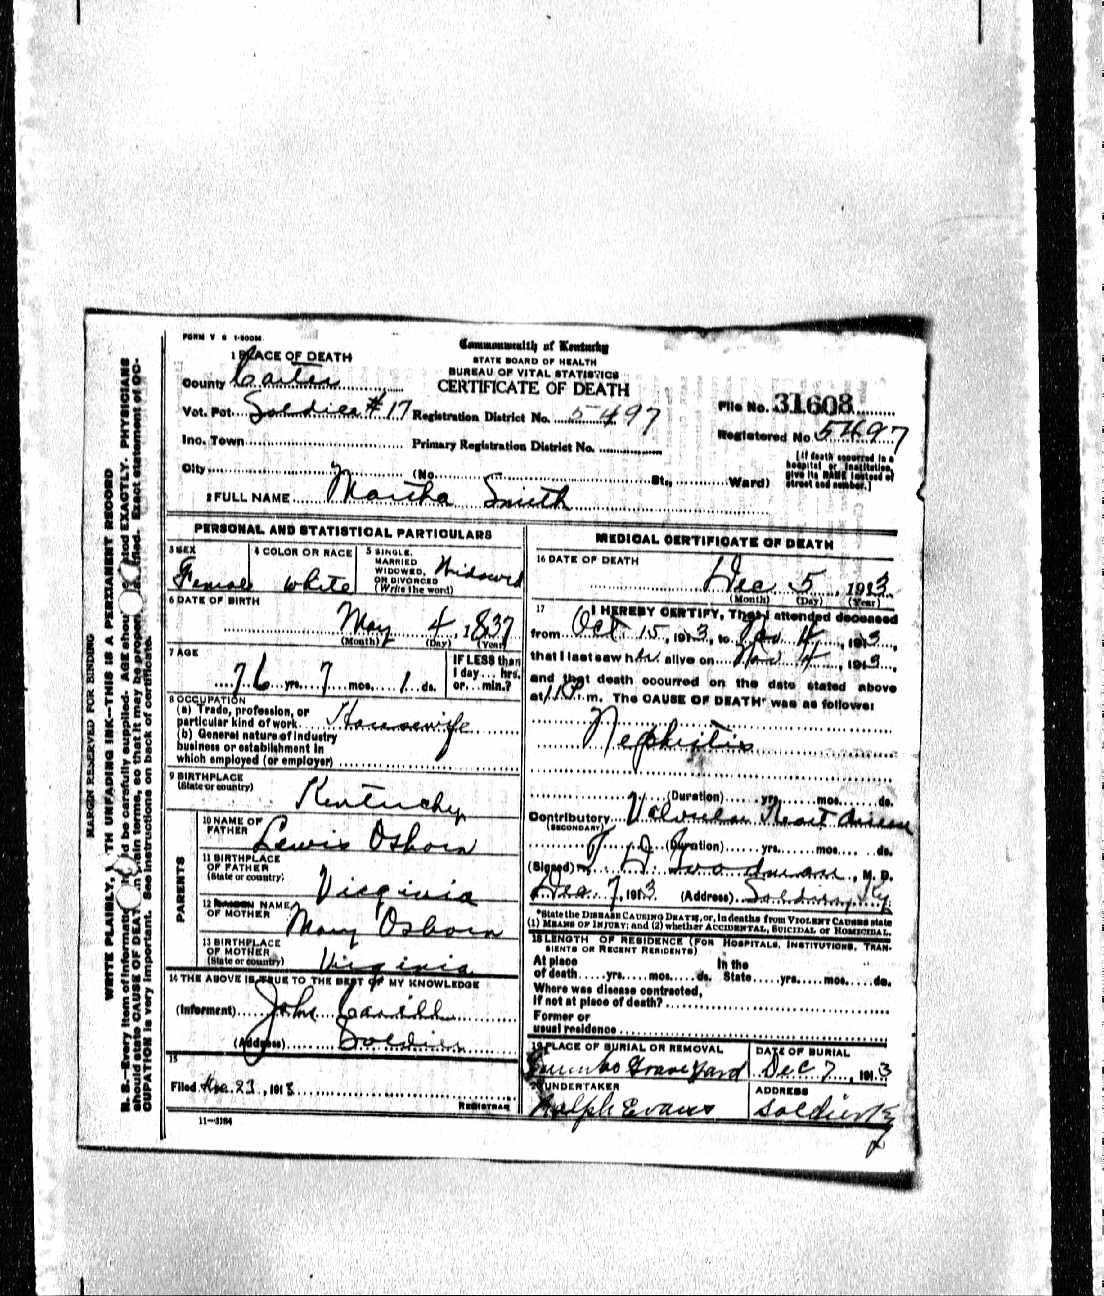 FORM V S 1-500M
Commonwealth of Kentucky
STATE BOARD OF HEALTH
BUREAU OF VITAL STATISTICS
CERTIFICATE OF DEATH
1 PLACE OF DEATH
County Carter
Vot. Pct. Soldier #17 Registration District No. 5497
File No. 31608
Registered No 5497
Inc. Town Primary Registration District No.
City (No. St., Ward)
[If death occurred in a hospital or institution, give its NAME instead of street and number.]
2 FULL NAME Martha Smith
PERSONAL AND STATISTICAL PARTICULARS
3 SEX Female
4 COLOR OR RACE white
5 SINGLE, MARRIED WIDOWED, OR DIVORCED (Write the word) Widowed
6 DATE OF BIRTH
May 4, 1837
(Month) (Day) (Year)
7 AGE
76 yrs. 7 mos. 1 ds.
IF LESS than 1 day... hrs. or... min.?
8 OCCUPATION
(a) Trade, profession, or particular kind of work Housewife
(b) General nature of industry business or establishment in which employed (or employer)
9 BIRTHPLACE
(State or country) Kentucky
PARENTS
10 NAME OF FATHER Lewis Osborn
11 BIRTHPLACE OF FATHER (State or country) Virginia
12 MAIDEN NAME OF MOTHER Mary Osborn
13 BIRTHPLACE OF MOTHER (State or country) Virginia
14 THE ABOVE IS TRUE TO THE BEST OF MY KNOWLEDGE
(Informent) John
(Address) Soldier
15
Filed Dec. 23, 1913
REGISTRAR
11-3184
MEDICAL CERTIFICATE OF DEATH
16 DATE OF DEATH
Dec 5, 1913
(Month) (Day) (Year)
17 I HEREBY CERTIFY, That I attended deceased
from Oct 15, 1913, to Nov 4, 1913,
that I last saw her alive on Nov 4, 1913
and that death occurred on the date stated above
at 11 P m. The CAUSE OF DEATH* was as follows:
Nephritis
(Duration) yrs. mos. ds.
Contributory Valvular Heart disease
(SECONDARY)
(Duration) yrs. mos. ds.
(Signed) Woodman, M. D.
Dec. 7, 1913 (Address) Soldier, Ky
*State the DISEASE CAUSING DEATH, or, in deaths from VIOLENT CAUSES state
(1) MEANS OF INJURY; and (2) whether ACCIDENTAL, SUICIDAL or HOMICIDAL.
18 LENGTH OF RESIDENCE (FOR HOSPITALS, INSTITUTIONS, TRANSIENTS OR RECENT RESIDENTS)
At place of death yrs. mos. ds. In the State yrs. mos. ds.
Where was disease contracted,
If not at place of death?
Former or
usual residence
19 PLACE OF BURIAL OR REMOVAL
Grave Yard
DATE OF BURIAL
Dec 7, 1913
20 UNDERTAKER
Ralph Evans
ADDRESS
Soldier Ky
MARGIN RESERVED FOR BINDING
WRITE PLAINLY, TH UNFADING INK—THIS IS A PERMANENT RECORD
N. B.—Every item of informat d be carefully supplied. AGE shou ated EXACTLY. PHYSICIANS
should state CAUSE OF DEAT n plain terms, so that it may be proper fied. Exact statement of OC-
CUPATION is very important. See instructions on back of certificate.